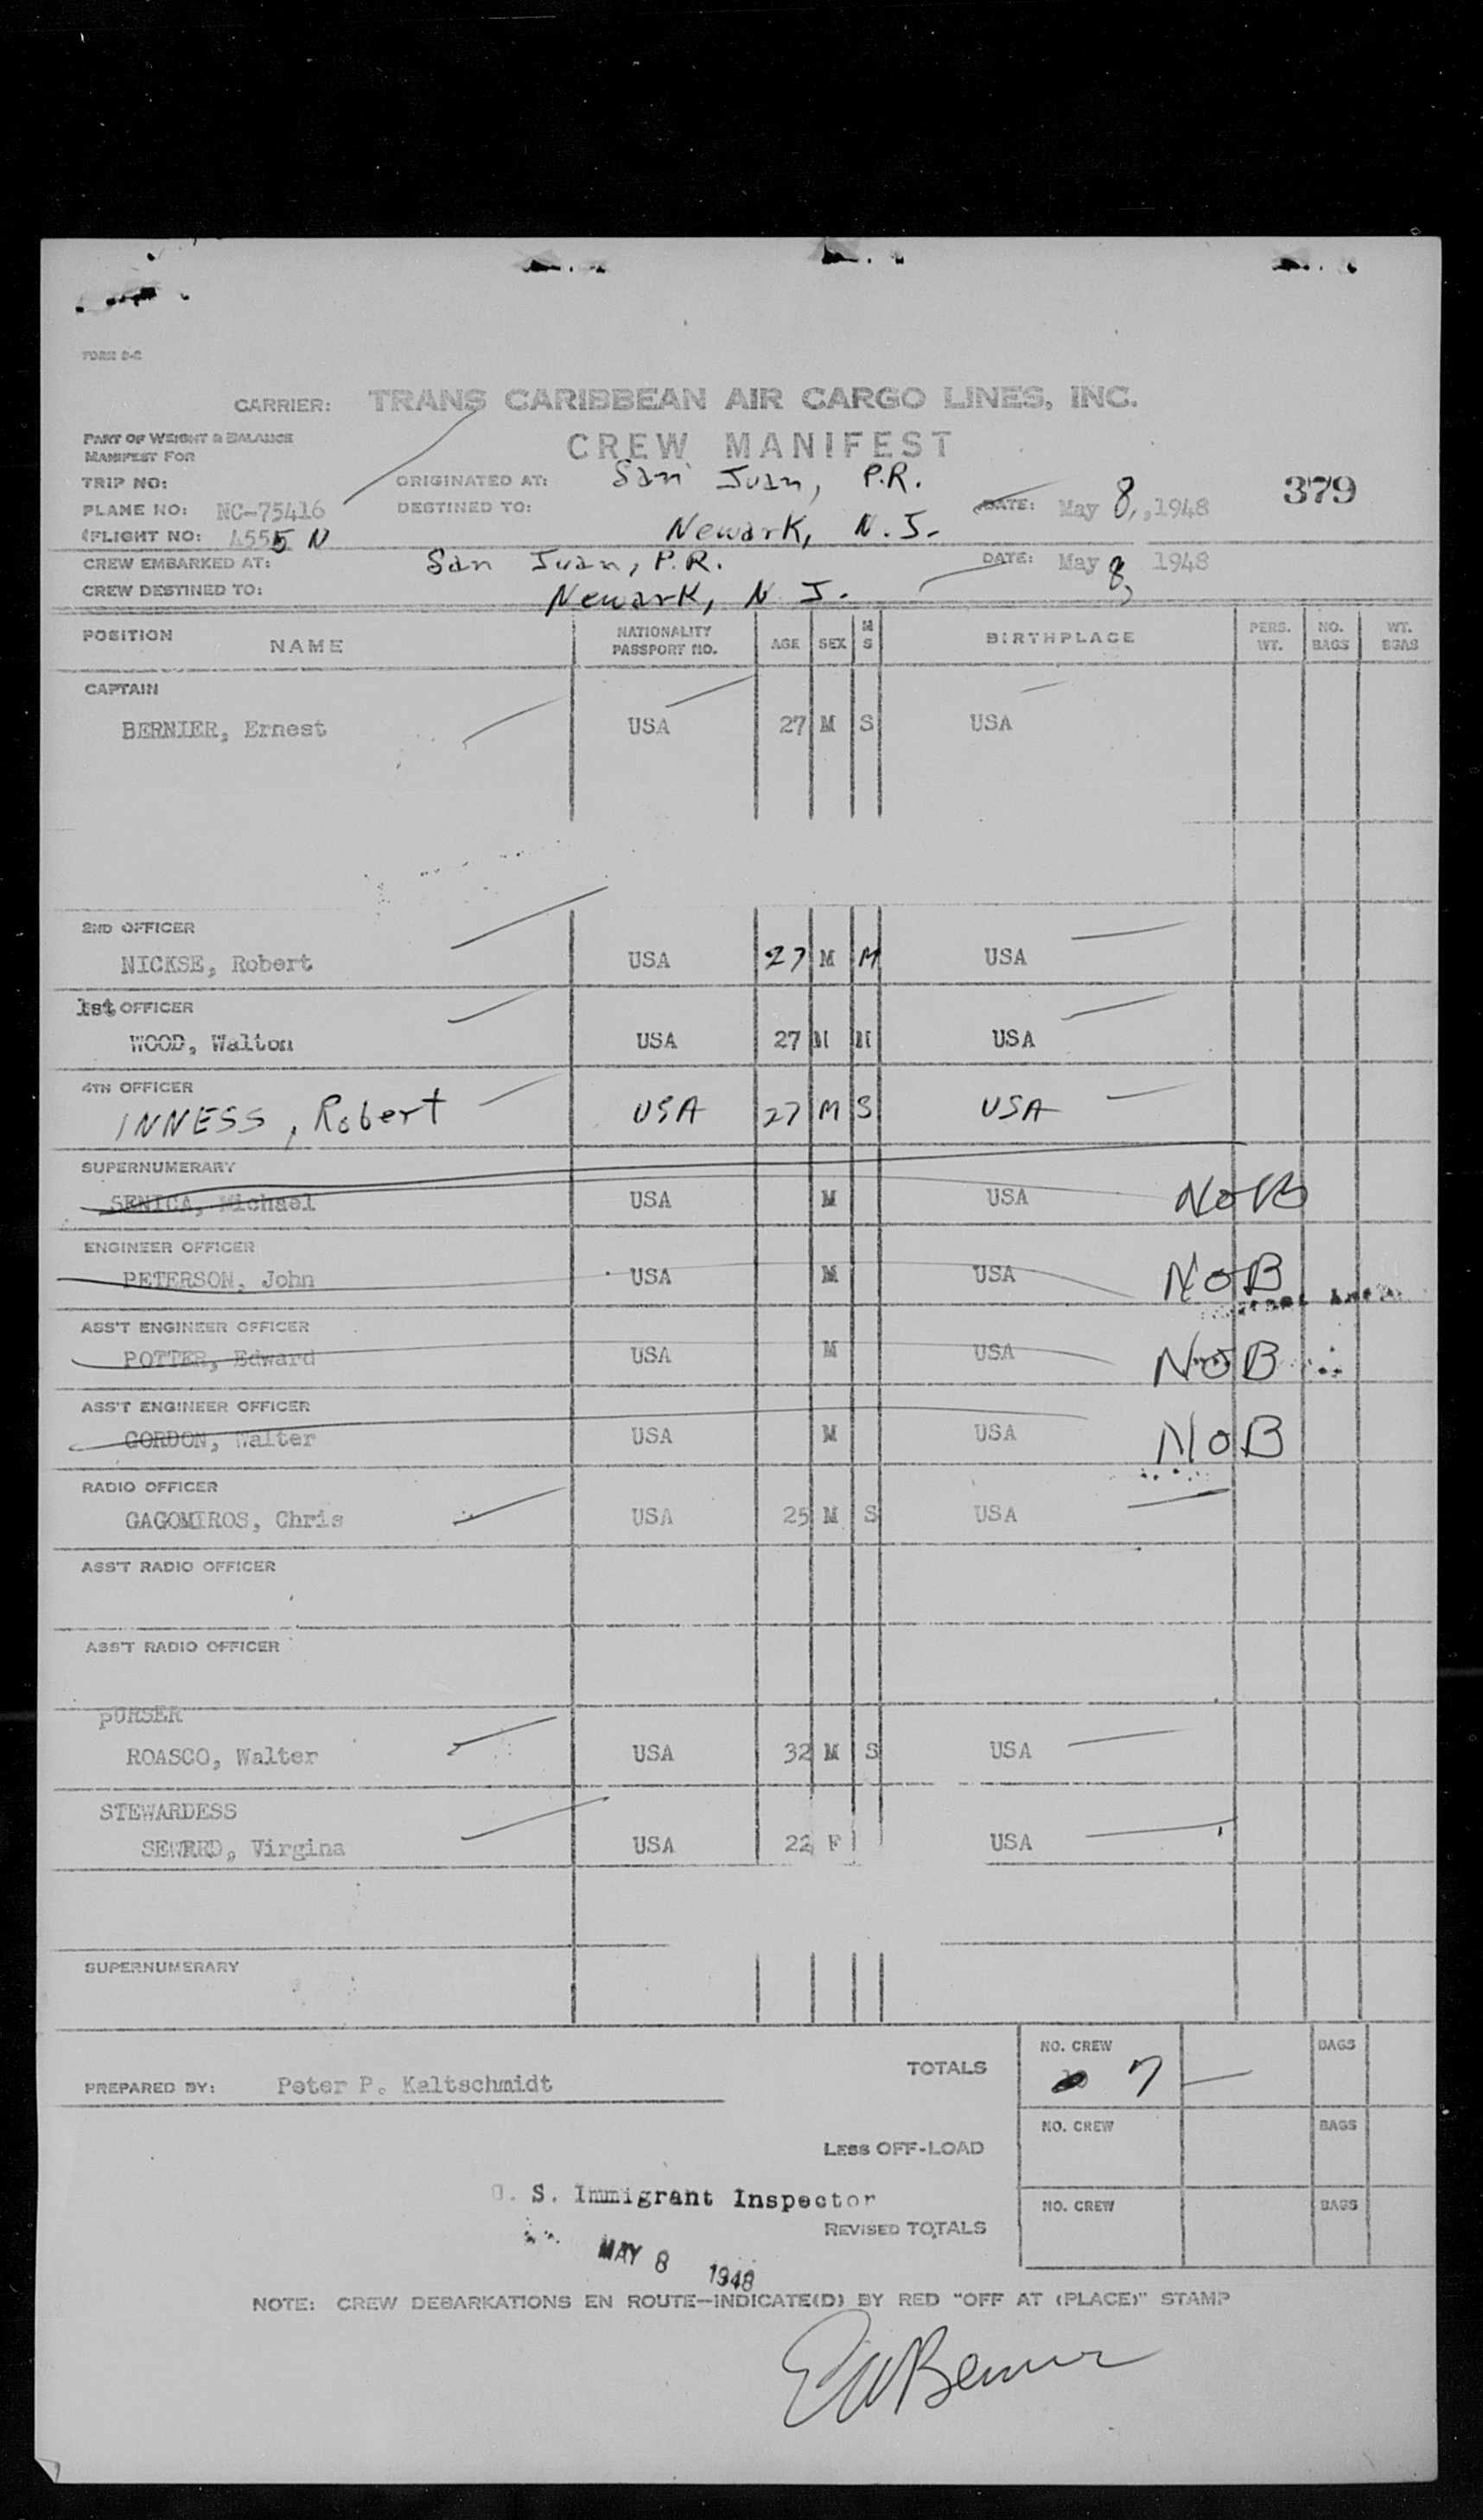 FORM
CARRIER: TRANS CARIBBEAN AIR CARGO LINES, INC.
PART OF WEIGHT & BALANCE
MANIFEST FOR
CREW MANIFEST
TRIP NO:
ORIGINATED AT: San Juan, P.R.
PLANE NO: NC-75416
DESTINED TO: Newark, N.J.
DATE: May 8, 1948
379
FLIGHT NO: 4555 N
CREW EMBARKED AT: San Juan, P.R. DATE: May 8, 1948
CREW DESTINED TO: Newark, N J.
POSITION NAME NATIONALITY PASSPORT NO. AGE SEX M S BIRTHPLACE PERS. WT. NO. BAGS WT. BGAS
CAPTAIN
BERNIER, Ernest USA 27 M S USA
2ND OFFICER
NICKSE, Robert USA 27 M M USA
1st OFFICER
WOOD, Walton USA 27 M M USA
4TH OFFICER
INNESS, Robert USA 27 M S USA
SUPERNUMERARY
SENICA, Michael USA M USA NOB
ENGINEER OFFICER
PETERSON, John USA M USA NOB
ASS'T ENGINEER OFFICER
POTTER, Edward USA M USA NOB
ASS'T ENGINEER OFFICER
GORDON, Walter USA M USA NOB
RADIO OFFICER
GAGOMIROS, Chris USA 25 M S USA
ASS'T RADIO OFFICER
ASS'T RADIO OFFICER
pURSER
ROASCO, Walter USA 32 M S USA
STEWARDESS
Virgina USA 22 F USA
SUPERNUMERARY
PREPARED BY: Peter P. Kaltschmidt
TOTALS NO. CREW 7 BAGS
LESS OFF-LOAD NO. CREW BAGS
U. S. Immigrant Inspector
REVISED TOTALS NO. CREW BAGS
MAY 8 1948
NOTE: CREW DEBARKATIONS EN ROUTE—INDICATE(D) BY RED "OFF AT (PLACE)" STAMP